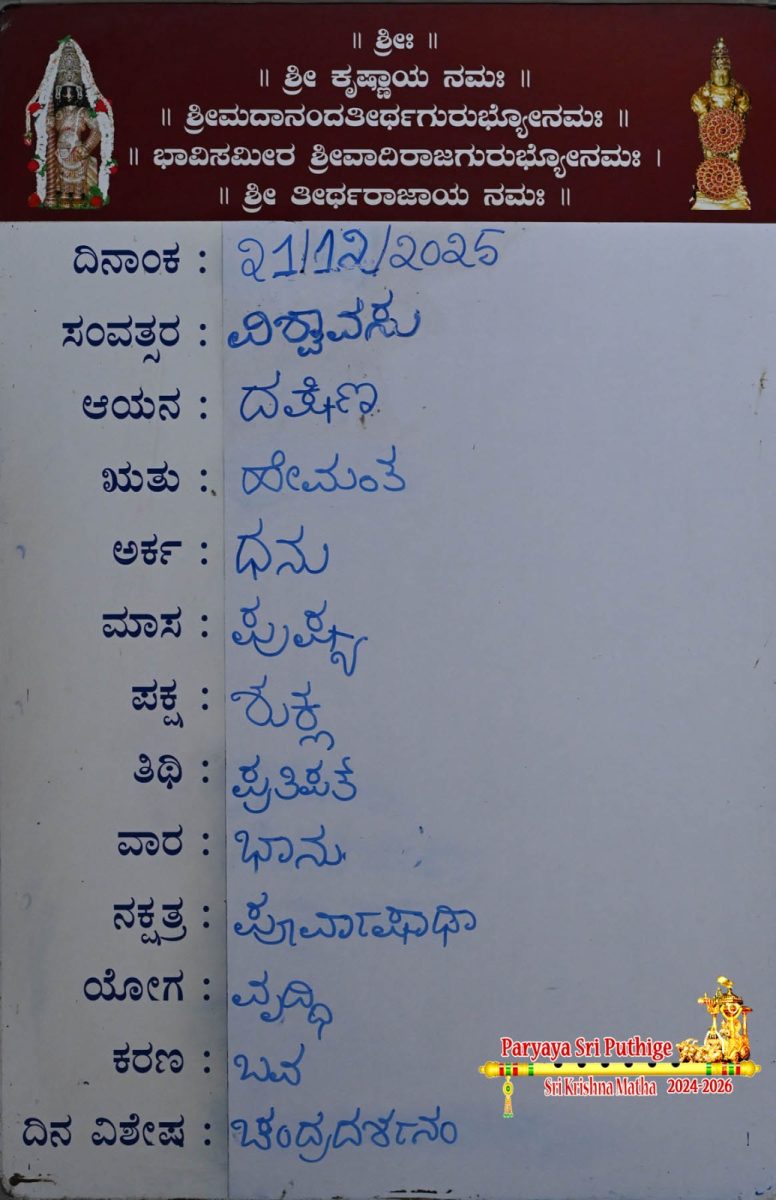 ॥ ಶ್ರೀಃ ॥
॥ ಶ್ರೀ ಕೃಷ್ಣಾಯ ನಮಃ ॥
॥ ಶ್ರೀಮದಾನಂದತೀರ್ಥಗುರುಭ್ಯೋನಮಃ ॥
॥ ಭಾವಿಸಮೀರ ಶ್ರೀವಾದಿರಾಜಗುರುಭ್ಯೋನಮಃ ।
॥ ಶ್ರೀ ತೀರ್ಥರಾಜಾಯ ನಮಃ ॥
ದಿನಾಂಕ : 21/12/2025
ಸಂವತ್ಸರ : ವಿಶ್ವಾವಸು
ಆಯನ : ದಕ್ಷಿಣ
ಋತು : ಹೇಮಂತ
ಅರ್ಕ : ಧನು
ಮಾಸ : ಪುಷ್ಯ
ಪಕ್ಷ : ಶುಕ್ಲ
ತಿಥಿ : ಪ್ರತಿಪತ್
ವಾರ : ಭಾನು
ನಕ್ಷತ್ರ : ಪೂರ್ವಾಷಾಢಾ
ಯೋಗ : ವೃದ್ಧಿ
ಕರಣ : ಬವ
ದಿನ ವಿಶೇಷ : ಚಂದ್ರದರ್ಶನಂ
Paryaya Sri Puthige
Sri Krishna Matha 2024-2026